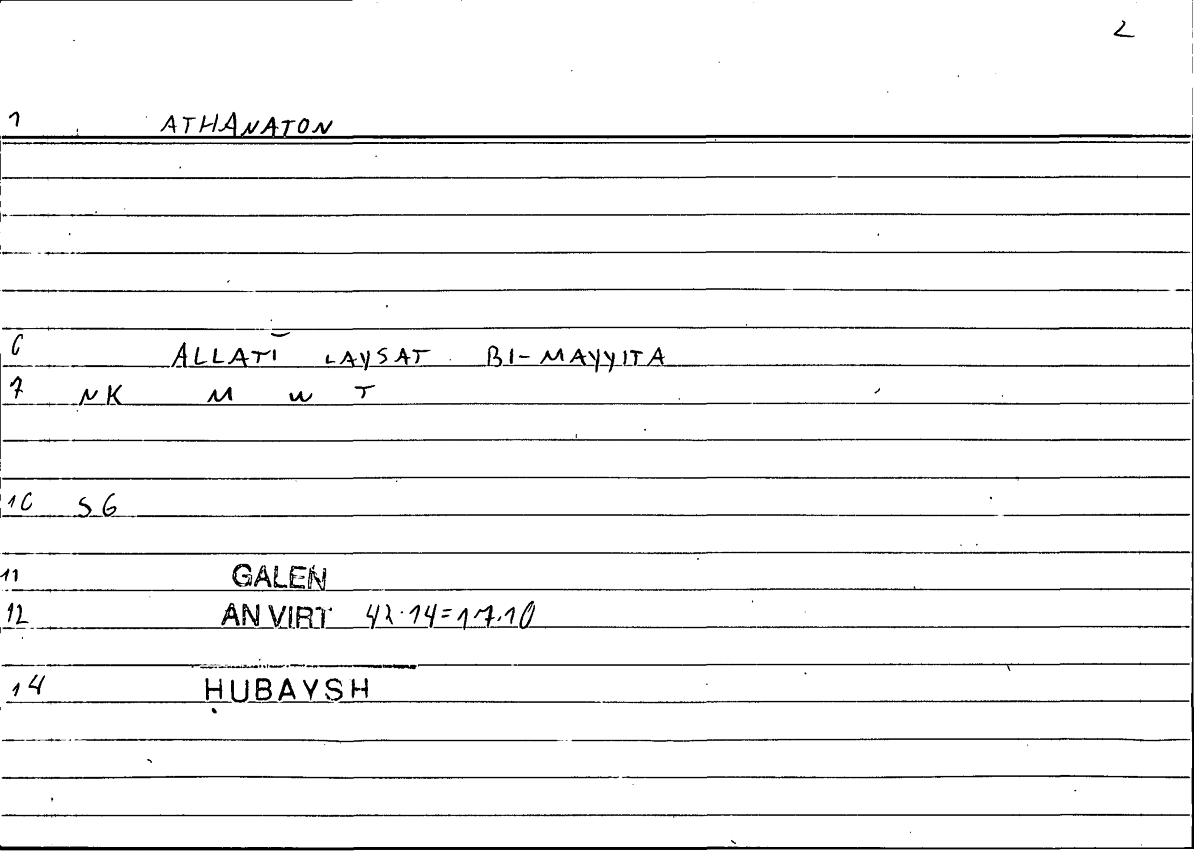 2
1 ATHANATON
6 ALLATĪ LAYSAT BI-MAYYITA
7 NK M W T
10 SG
11 GALEN
12 AN VIRT 42.14=17.10
14 ḤUBAYSH